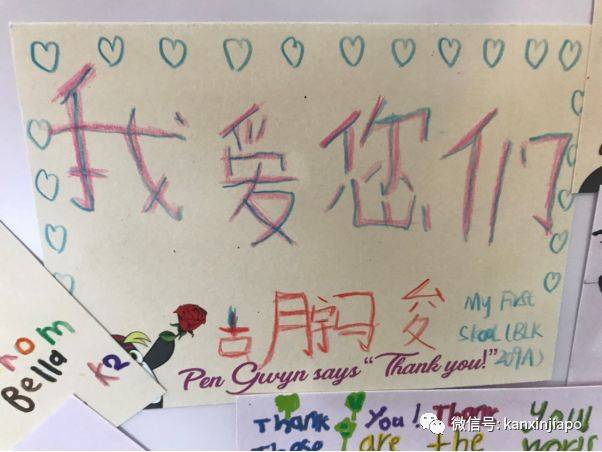 我爱您们
胡
My First
Skool (BLK
209A)
Pen Gwyn says "Thank you!"
Bella K2
Thank You! Thank You
These are the
微信号: kanxinjiapo